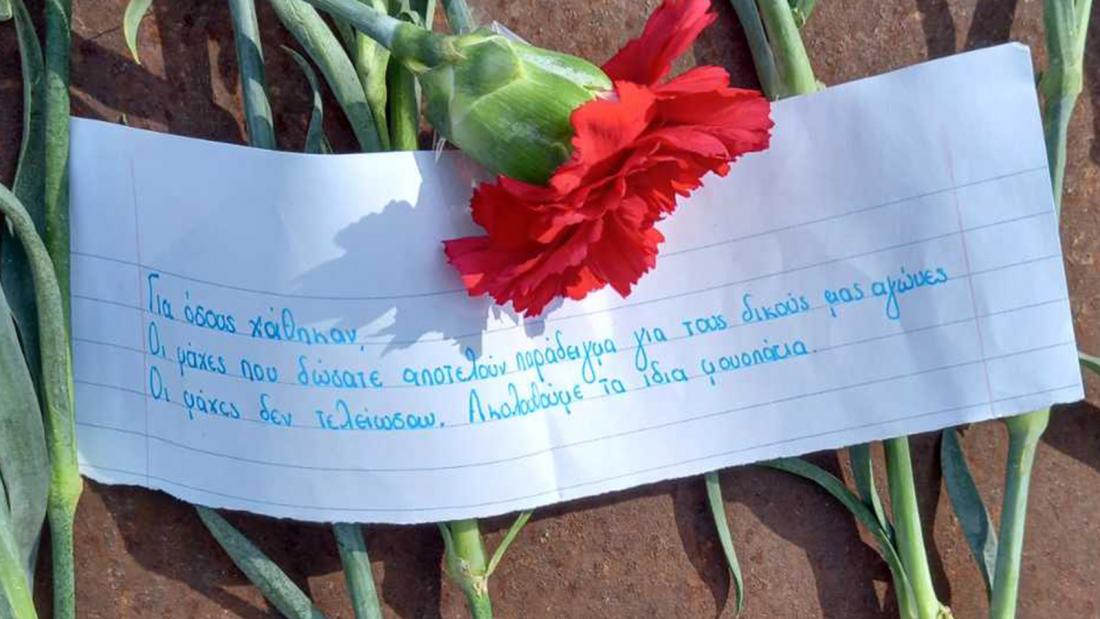 Για όσους χάθηκαν,
Οι μάχες που δώσατε αποτελούν παράδειγμα για τους δικούς μας αγώνες
Οι μάχες δεν τελείωσαν. Ακολουθούμε τα ίδια μονοπάτια.